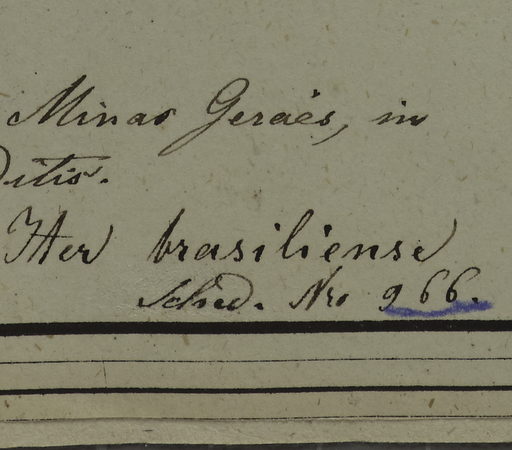 Minas Geraës, in
ditis.
Iter brasiliense
Sched. Nro 966.